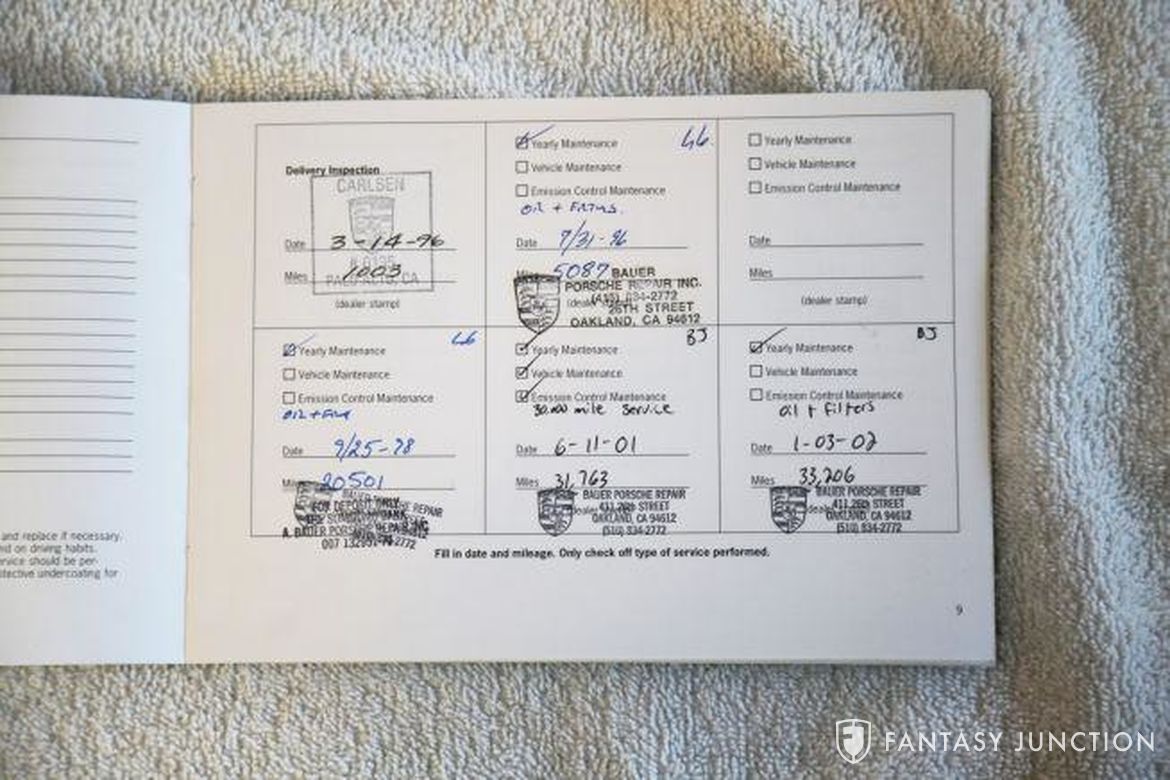 and replace if necessary.
nd on driving habits.
ervice should be per-
otective undercoating for
Delivery Inspection
CARLSEN
Date 3-14-96
Miles 1003
PALO ALTO, CA
(dealer stamp)
Yearly Maintenance
Vehicle Maintenance
Emission Control Maintenance
OIL +
Date 7/31-96
Miles 5087
BAUER
PORSCHE REPAIR INC.
834-2772
26TH STREET
OAKLAND, CA 94612
Yearly Maintenance
Vehicle Maintenance
Emission Control Maintenance
Date
Miles
(dealer stamp)
Yearly Maintenance
Vehicle Maintenance
Emission Control Maintenance
OIL +
Date 9/25-98
Miles 20501
FOR DEPOSIT ONLY
BJ
Yearly Maintenance
Vehicle Maintenance
Emission Control Maintenance
30,000 mile service
Date 6-11-01
Miles 31,763
BAUER PORSCHE REPAIR
411 26th STREET
OAKLAND, CA 94612
(510) 834-2772
BJ
Yearly Maintenance
Vehicle Maintenance
Emission Control Maintenance
oil + filters
Date 1-03-02
Miles 33,206
BAUER PORSCHE REPAIR
411 26th STREET
OAKLAND, CA 94612
(510) 834-2772
Fill in date and mileage. Only check off type of service performed.
9
FANTASY JUNCTION